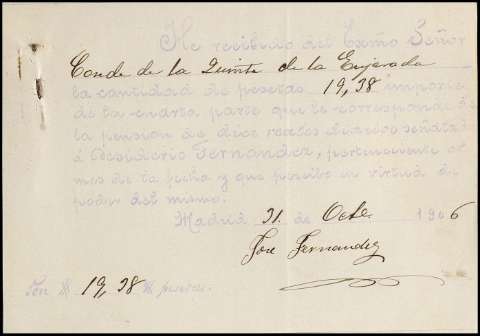 He recibido del Exmo Señor
Conde de la Quinta de la Enjarada
la cantidad de pesetas 19,38 importe
de la cuarta parte que le corresponde de
la pension de diez reales diarios señalada
á Desiderio Fernandez, perteneciente al
mes de la fecha y que percibo en virtud de
poder del mismo.
Madrid 31 de Octe 1906
Jose Fernandez
Son # 19,38 # pesetas.